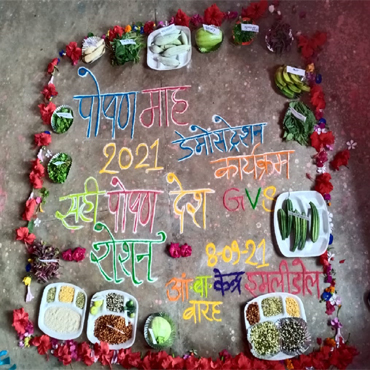 पोषण माह
2021 डेमोस्ट्रेशन
कार्यक्रम
सही पोषण देश GVS
रोशन
8-09-21
आं.बा केन्द्र इमलीडोल
बारह